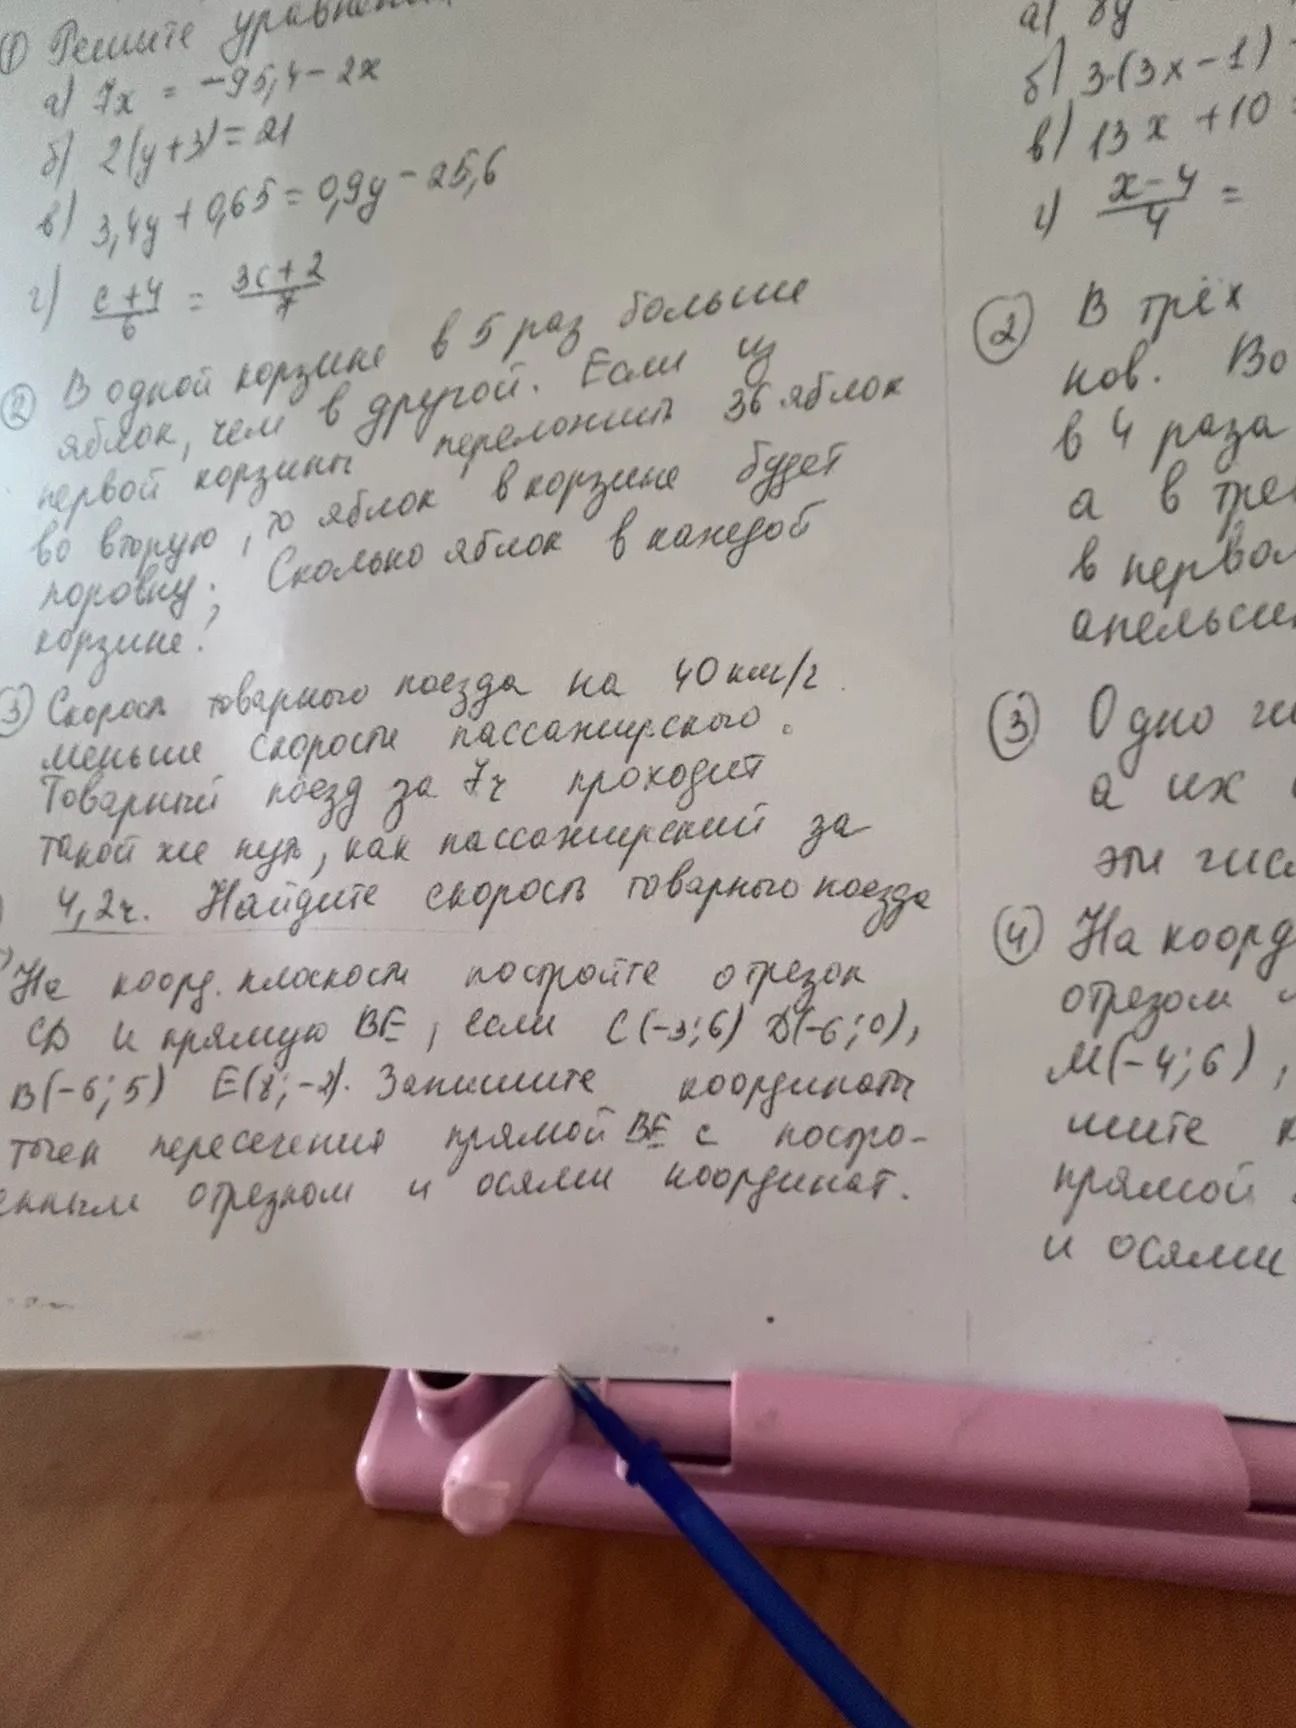 ① Решите уравнения
а) 7x = -95,4 - 2x
б) 2(y+3) = 21
в) 3,4y + 0,65 = 0,9y - 25,6
г) c+4/6 = 3c+2/7
② В одной корзине в 5 раз больше
яблок, чем в другой. Если из
первой корзины переложить 36 яблок
во вторую, то яблок в корзине будет
поровну. Сколько яблок в каждой
корзине?
③ Скорость товарного поезда на 40 км/ч
меньше скорости пассажирского.
Товарный поезд за 7ч проходит
такой же путь, как пассажирский за
4,2ч. Найдите скорость товарного поезда
На коорд. плоскости постройте отрезок
CD и прямую BE, если C(-3;6) D(-6;0),
B(-6;5) E(8;-2). Запишите координаты
точек пересечения прямой BE с постро-
енным отрезком и осями координат.
а) 8y
б) 3·(3x-1)
в) 13x + 10 =
г) x-4/4 =
② В трёх
нов. Во
в 4 раза
а в тре
в перво
апельси
③ Одно чи
а их
эти чис
④ На коорд
отрезок
M(-4;6),
шите к
прямой
и осями